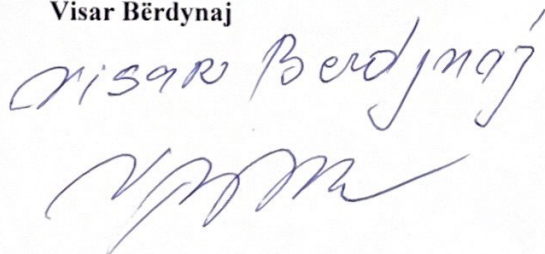 Visar Bërdynaj
Visar Berdynaj